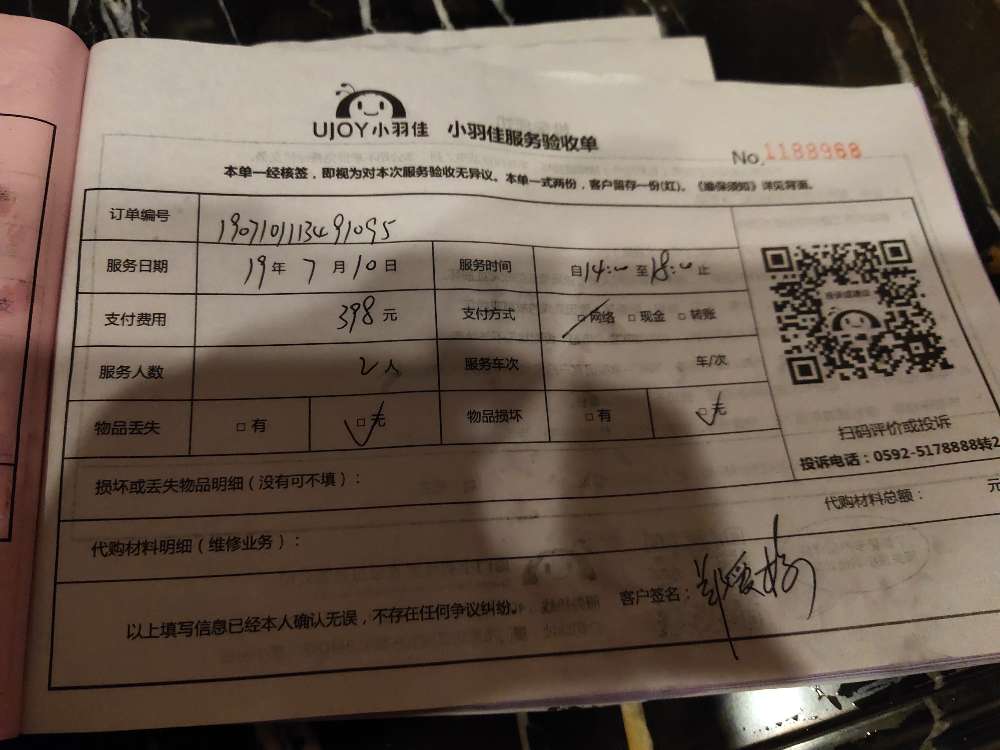 UJOY小羽佳 小羽佳服务验收单
No.1188968
本单一经核签，即视为对本次服务验收无异议。本单一式两份，客户留存一份(红)。《维保须知》详见背面。
订单编号 190710113491095
服务日期 19年7月10日 服务时间 自14:00至18:00止
支付费用 398元 支付方式 □网络 □现金 □转账
服务人数 2人 服务车次 车/次
物品丢失 □有 □无 物品损坏 □有 □无
扫码评价或投诉
投诉电话：0592-5178888转2
损坏或丢失物品明细（没有可不填）：
代购材料总额： 元
代购材料明细（维修业务）：
以上填写信息已经本人确认无误，不存在任何争议纠纷。 客户签名：